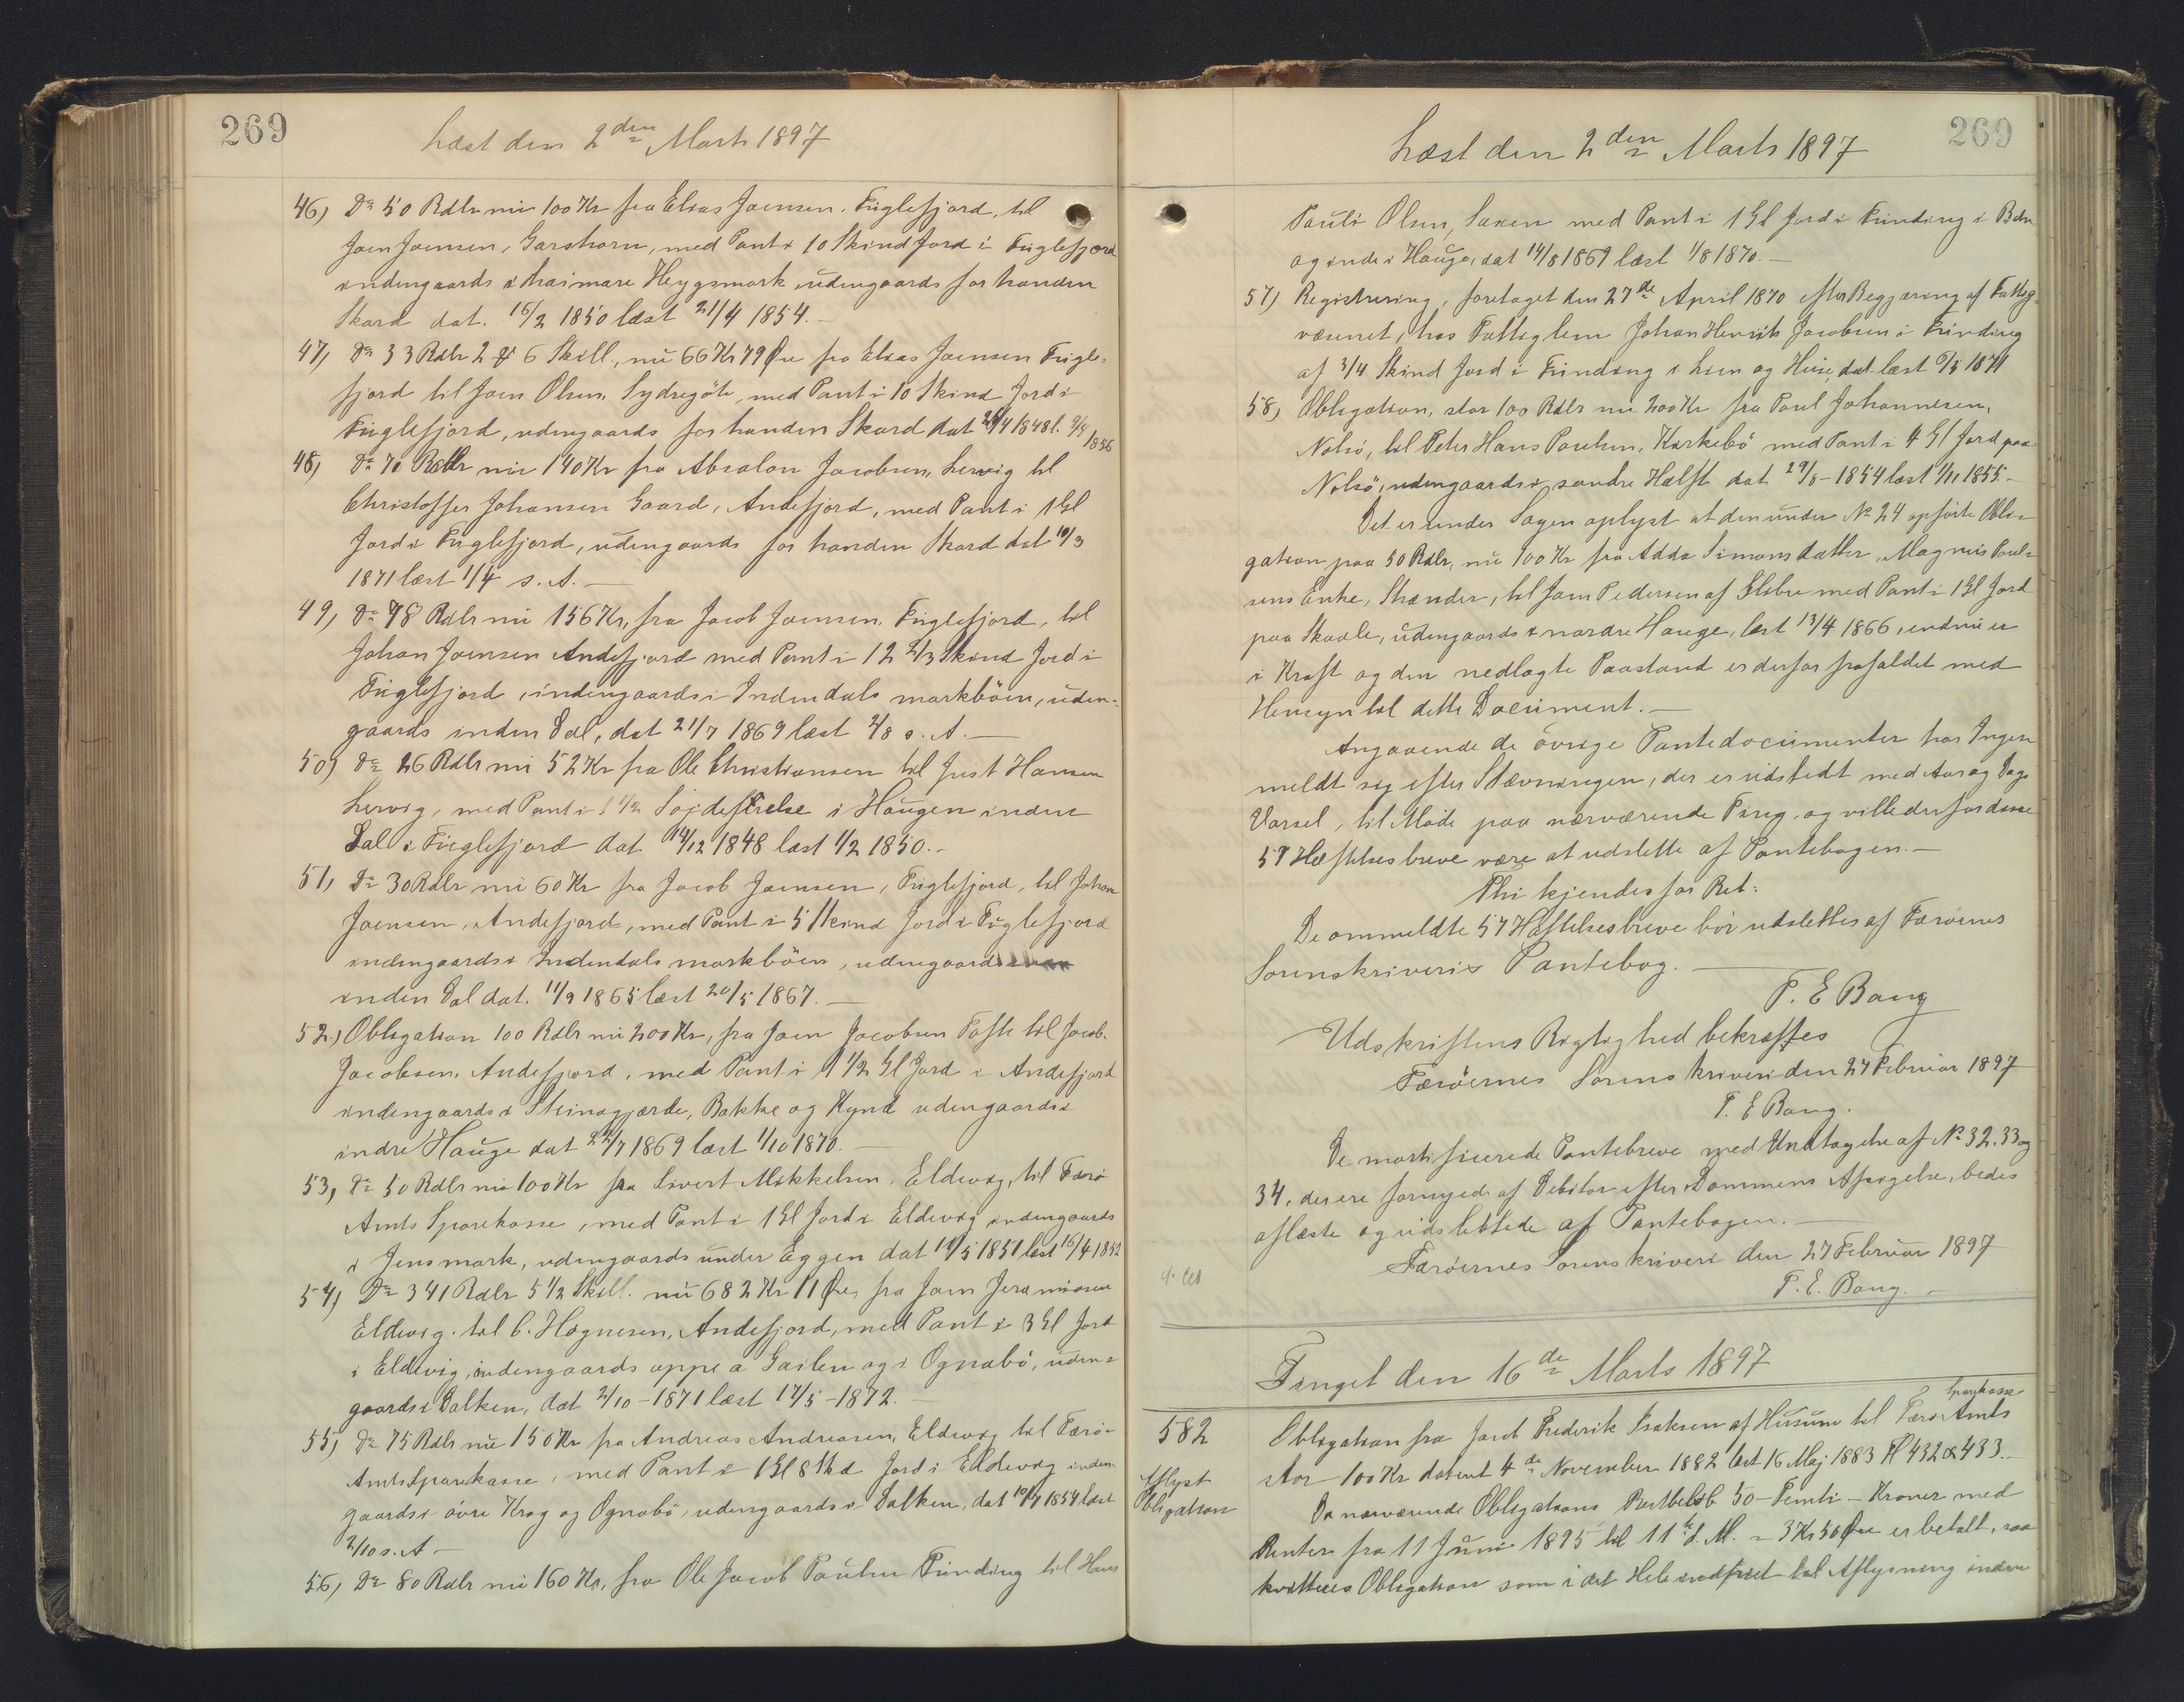 269
Læst den 2den Marts 1897
46) Do 50 Rdlr nu 100 Kr fra Elias Joensen, Fuglefjord, til
Joen Joensen, Garshorn, med Pant i 10 Skind Jord i Fuglefjord
indengaards i Heygsmark, udengaards for handen
Skard dat. 16/2 1850 læst 21/4 1854.-
47) Do 33 Rdlr 2 & 6 Skill., nu 66 Kr 79 Øre fra Elias Joensen Fugle-
fjord til Joen Olsen Sydregöte, med Pant i 10 Skind Jord i
Fuglefjord, udengaards for handen Skard dat 26/4 1848 l. 9/4 1856
48) Do 70 Rdlr nu 140 Kr fra Absalon Jacobsen, Lervig til
Christoffer Johansen Gaard, Andefjord, med Pant i 1 Gl
Jord i Fuglefjord, udengaards for handen Skard dat 10/3
1871 læst 1/4 s. A.-
49) Do 78 Rdlr nu 156 Kr, fra Jacob Joensen, Fuglefjord, til
Johan Joensen Andefjord med Pant i 12 2/3 Skind Jord i
Fuglefjord, indengaards i Indendals markböen, uden-
gaards inden Dal, dat 21/7 1869 læst 4/8 s. A.-
50) Do 26 Rdlr nu 52 Kr fra Ole Christiansen til Just Hansen
Lervig, med Pant i 1 1/2 i Haugen inden
Dal i Fuglefjord dat 14/12 1848 læst 1/2 1850.-
51) Do 30 Rdlr nu 60 Kr fra Jacob Joensen, Fuglefjord, til Johan
Joensen, Andefjord, med Pant i 5 Skind Jord i Fuglefjord
indengaards i Indendals markböen, udengaards
inden Dal dat. 11/9 1865 læst 20/5 1867.-
52) Obligation 100 Rdlr nu 200 Kr, fra Joen Jacobsen Tofte til Jacob
Jacobsen, Andefjord, med Pant i 1 1/2 Gl Jord i Andefjord
indengaards i Steinagjærde, Bakke og Kynd udengaards i
indre Hauge dat 22/7 1869 læst 1/10 1870.-
53) Do 50 Rdlr nu 100 Kr fra Sivert Mikkelsen, Eldevig, til Færö
Amts Sparekasse, med Pant i 1 Gl Jord i Eldevig indengaards
i Jensmark, udengaards under Eggen dat 14/5 1851 læst 16/4 1852
54) Do 341 Rdlr 5 1/2 Skill. nu 682 Kr 11 Øre, fra Joen Jeremiasen
Eldevig, til C. Høgnesen, Andefjord, med Pant i 3 Gl Jord
i Eldevig, indengaards oppe a Garlen og i Ognabö, uden-
gaards i Dalken, dat 2/10-1871 læst 17/5-1872.-
55) Do 75 Rdlr nu 150 Kr fra Andreas Andreasen, Eldevig til Færö-
Amts Sparekasse, med Pant i 1 Gl 8 Skd Jord i Eldevig inden
gaards i övre Krog og Ognabö, udengaards i Dalken, dat 10/7 1854 læst
2/10 s. A -
56) Do 80 Rdlr nu 160 Kr, fra Ole Jacob Poulsen Funding til Hans
269
Læst den 2den Marts 1897
Pauli Olsen, Saxen med Pant i 1 Gl Jord i Funding i
og inde i Hauge, dat 14/8 1869 læst 1/8 1870.-
57) Registrering, foretaget den 27de April 1870 efter Begjæring af Fattig-
væsenet, hos Fattiglem Johan Henrik Jacobsen i Funding
af 3/4 Skind Jord i Funding i Lien og Huse, dat læst 6/5 1871
58) Obligation, stor 100 Rdlr nu 200 Kr fra Poul Johannesen,
Nolsö, til Peter Hans Poulsen, Kirkebö med Pant i 4 Gl Jord paa
Nolsö, udengaards i søndre Halft dat 29/8-1854 læst 1/11 1855.-
Det er under Sagen oplyst at den under No 24 opførte Obli-
gation paa 50 Rdlr, nu 100 Kr fra Adda Simonsdatter, Magnus Poul-
sens Enke, Skander, til Joen Pedersen af Glibre med Pant i 1 Gl Jord
paa Skaale, udengaards i nordre Hauge, læst 13/4 1866, endnu er
i Kraft og den nedlagte Paastand er derfor frafaldet med
Hensyn til dette Document.-
Angaaende de övrige Pantedocumenter har Ingen
meldt sig efter Stævningen, der er udstedt med Aar og Dags
Varsel, til Møde paa nærværende Ting, og ville derfor disse
57 Hæftelsesbreve være at udslette af Pantebogen.-
Thi kjendes for Ret:
De ommeldte 57 Hæftelsesbreve bör udslettes af Færöernes
Sorenskriveris Pantebog.-
P. E Bang
Udskriftens Rigtighed bekræftes
Færöernes Sorenskriveri den 27 Februar 1897
P. E Bang.
De mortificerede Pantebreve med Undtagelse af No 32, 33 og
34, der ere fornyede af Debitor efter Dommens Afsigelse, bedes
aflæste og udslettede af Pantebogen.-
Færöernes Sorenskriveri den 27 Februar 1897
P. E. Bang.-
Tinget den 16de Marts 1897
582
Aflyst
Obligation
Obligation fra Jacob Frederik Isaksen af Husum til Færö Amts Sparekasse
stor 100 Kr dateret 4de November 1882 læst 16 Maj 1883 No 432 & 433.-
Da nærværende Obligations Restbeløb 50 - Femti - Kroner med
Renter fra 11 Juni 1895 til 11te d. M. = 3 Kr 50 Øre er betalt, saa
kvitteres Obligation som i det Hele indfriet til Aflysning inden